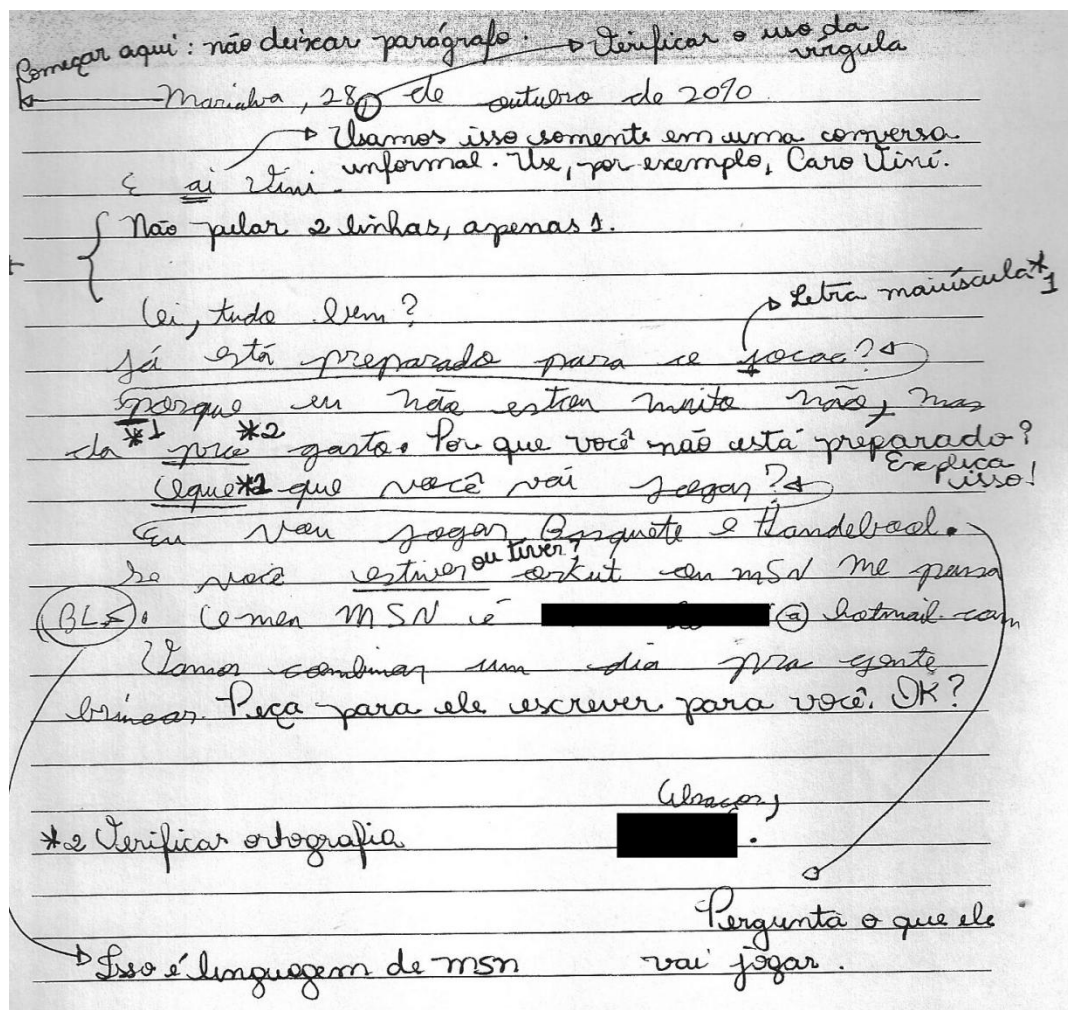 Começar aqui: não deixar parágrafo. Verificar o uso da vírgula
Marialva, 28, de outubro de 2010
Usamos isso somente em uma conversa
informal. Use, por exemplo, Caro Vini.
E ai Vini.
Não pular 2 linhas, apenas 1.
Letra maiúscula *1
Oi, tudo bem?
Já está preparado para se jocac?
porque eu não estou muito não, mas
da *1 pro *2 gasto. Por que você não está preparado?
Explica isso!
Oque *2 que você vai jogar?
Eu vou jogar Basquete e Handebool.
Se você estiver ou tiver? orkut ou mSN me passa
BLZ. O meu MSN é @hotmail.com
Vamos combinar um dia pra gente
brincar. Peça para ele escrever para você. OK?
Abraços,
*2 Verificar ortografia
Pergunta o que ele
vai jogar.
Isso é linguagem de msn